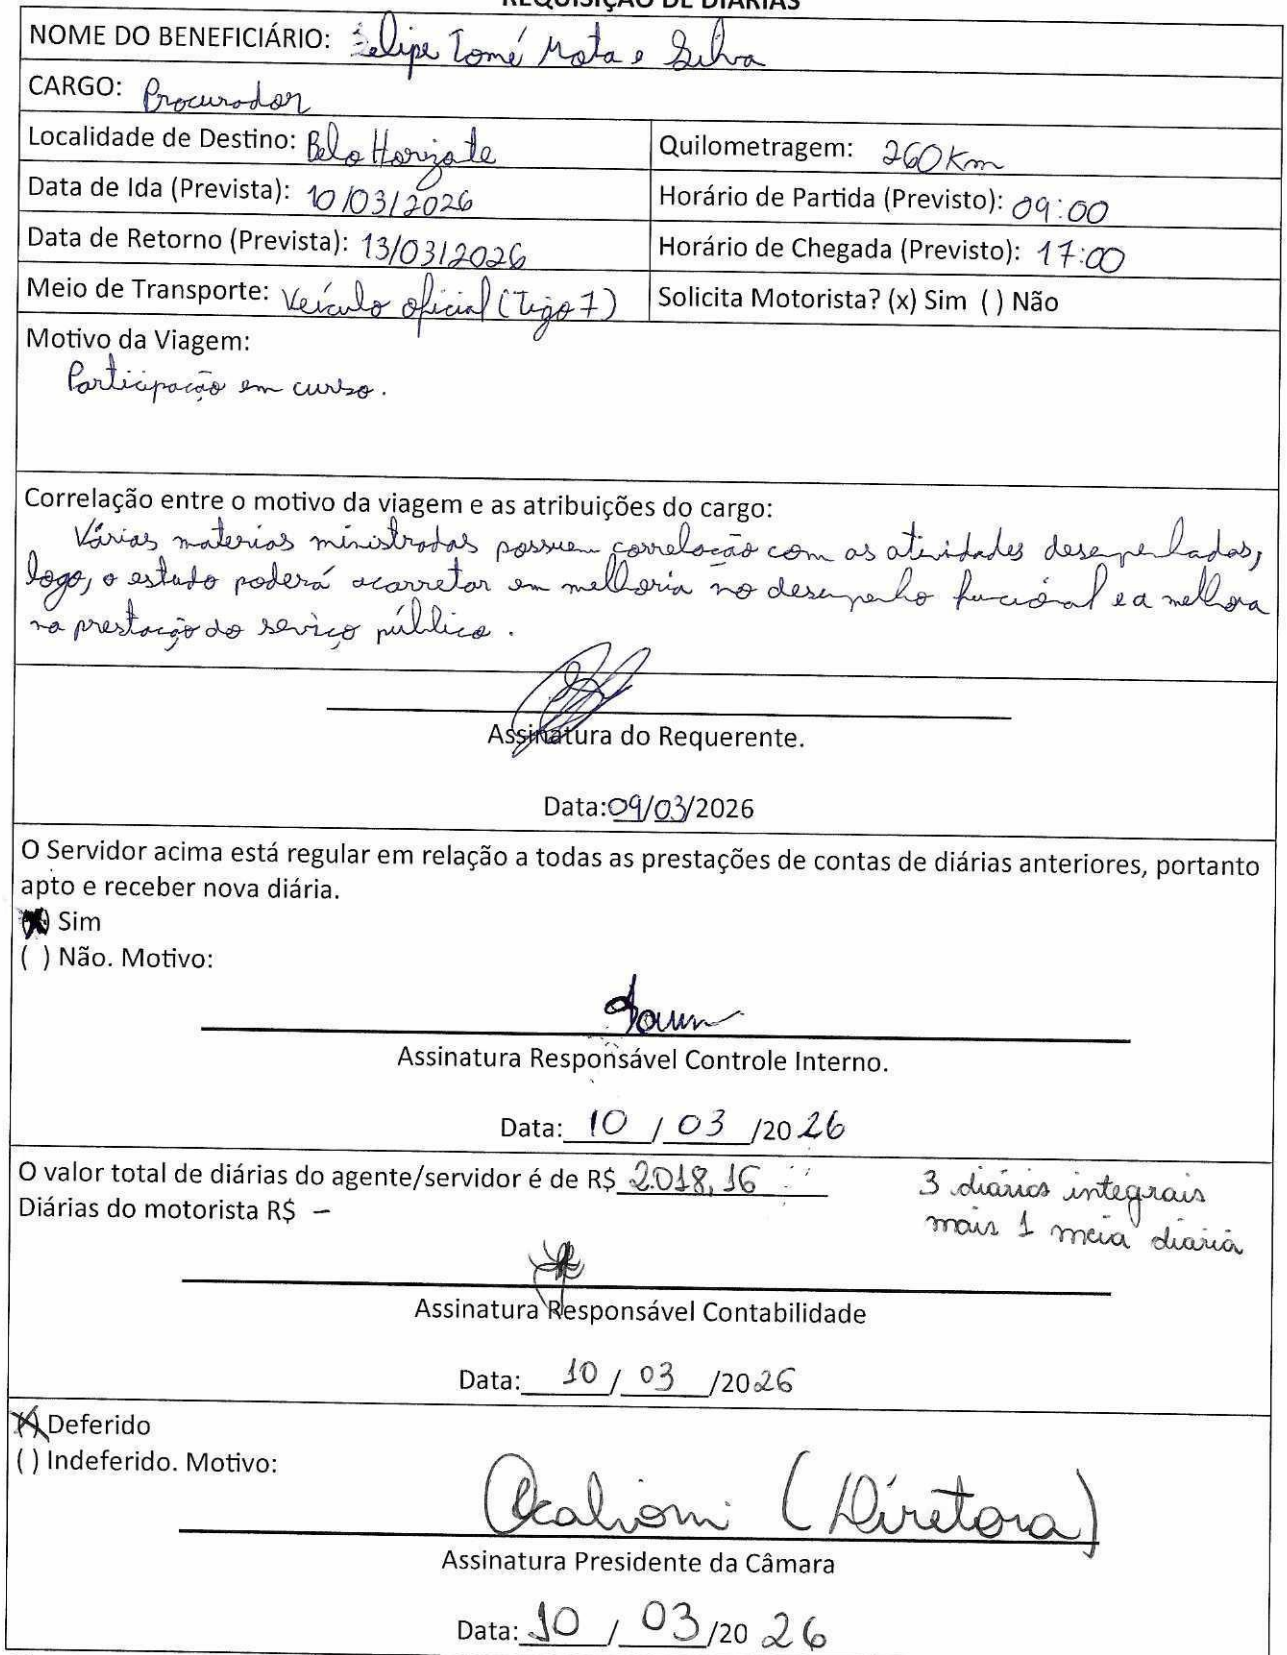 REQUISIÇÃO DE DIÁRIAS
NOME DO BENEFICIÁRIO: Felipe Tomé Mota e Silva
CARGO: Procurador
Localidade de Destino: Belo Horizote
Quilometragem: 260Km
Data de Ida (Prevista): 10/03/2026
Horário de Partida (Previsto): 09:00
Data de Retorno (Prevista): 13/03/2026
Horário de Chegada (Previsto): 17:00
Meio de Transporte: Veículo oficial (Tigo 7)
Solicita Motorista? (x) Sim ( ) Não
Motivo da Viagem:
Participação em curso.
Correlação entre o motivo da viagem e as atribuições do cargo:
Várias materias ministradas possuem correlação com as atividades desempenhadas,
logo, o estudo poderá acarretar em melhoria no desempenho funcional e a melhora
na prestação do serviço público.
Assinatura do Requerente.
Data:09/03/2026
O Servidor acima está regular em relação a todas as prestações de contas de diárias anteriores, portanto
apto e receber nova diária.
(X) Sim
( ) Não. Motivo:
Assinatura Responsável Controle Interno.
Data: 10 / 03 /2026
O valor total de diárias do agente/servidor é de R$ 2.018,16
3 diárias integrais
mais 1 meia diaria
Diárias do motorista R$ –
Assinatura Responsável Contabilidade
Data: 10 / 03 /2026
(X) Deferido
( ) Indeferido. Motivo:
(Diretora)
Assinatura Presidente da Câmara
Data: 10 / 03 /2026